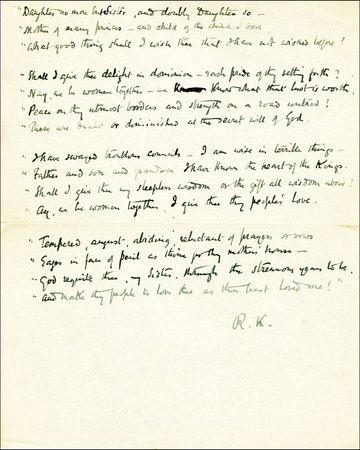 "Daughter no more but Sister, and doubly Daughter so —
"Mother of many princes — and child of the child I bore
"What good thing shall I wish thee that I have not wished before?
"Shall I give thee delight in dominion — rash pride of thy setting forth?
"Nay, we be women together — we know what that lust is worth.
"Peace on thy utmost borders and strength on a road untrod?
"These are dealt or diminished at the secret will of God
"I have swayed troublous councils — I am wise in terrible things —
"Father and son and grandson I have known the heart of the Kings.
"Shall I give thee my sleepless wisdom or the gift all wisdom above
"Ay, we be women together, I give thee thy people's love.
"Tempered, august, abiding, reluctant of prayers or vows
"Eager in face of peril as thine for thy mother's house —
"God requite thee, my Sister, through the strenuous years to be.
"and make thy people to love thee as thou hast loved me!"
R. K.